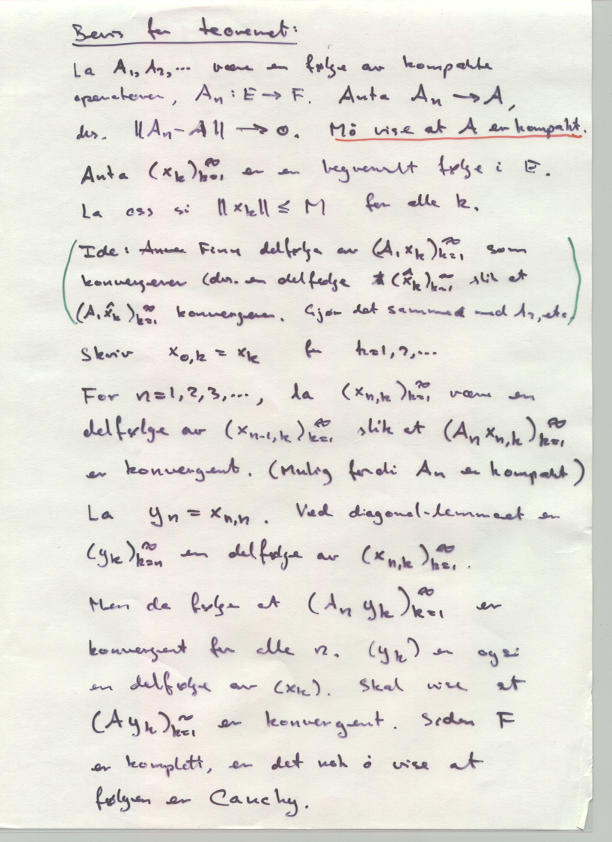 Bevis for teoremet:
La A₁, A₂, ... være en følge av kompakte
operatorer, Aₙ : E → F. Anta Aₙ → A,
dvs. ‖Aₙ - A‖ → 0. Må vise at A er kompakt.
Anta (xₖ)ₖ₌₁^∞ er en begrenset følge i E.
La oss si ‖xₖ‖ ≤ M for alle k.
(Ide: Finn delfølge av (A₁xₖ)ₖ₌₁^∞ som
konvergerer (dvs. en delfølge (x̂ₖ)ₖ₌₁^∞ slik at
(A₁x̂ₖ)ₖ₌₁^∞ konvergerer. Gjør det samme med A₂, etc.)
Skriv x₀,ₖ = xₖ for k=1,2,...
For n=1,2,3,..., la (xₙ,ₖ)ₖ₌₁^∞ være en
delfølge av (xₙ₋₁,ₖ)ₖ₌₁^∞ slik at (Aₙxₙ,ₖ)ₖ₌₁^∞
er konvergent. (Mulig fordi Aₙ er kompakt)
La yₙ = xₙ,ₙ. Ved diagonal-lemmaet er
(yₖ)ₖ₌ₙ^∞ en delfølge av (xₙ,ₖ)ₖ₌₁^∞.
Men da følger at (Aₙyₖ)ₖ₌₁^∞ er
konvergent for alle n. (yₖ) er også
en delfølge av (xₖ). Skal vise at
(Ayₖ)ₖ₌₁^∞ er konvergent. Siden F
er komplett, er det nok å vise at
følgen er Cauchy.